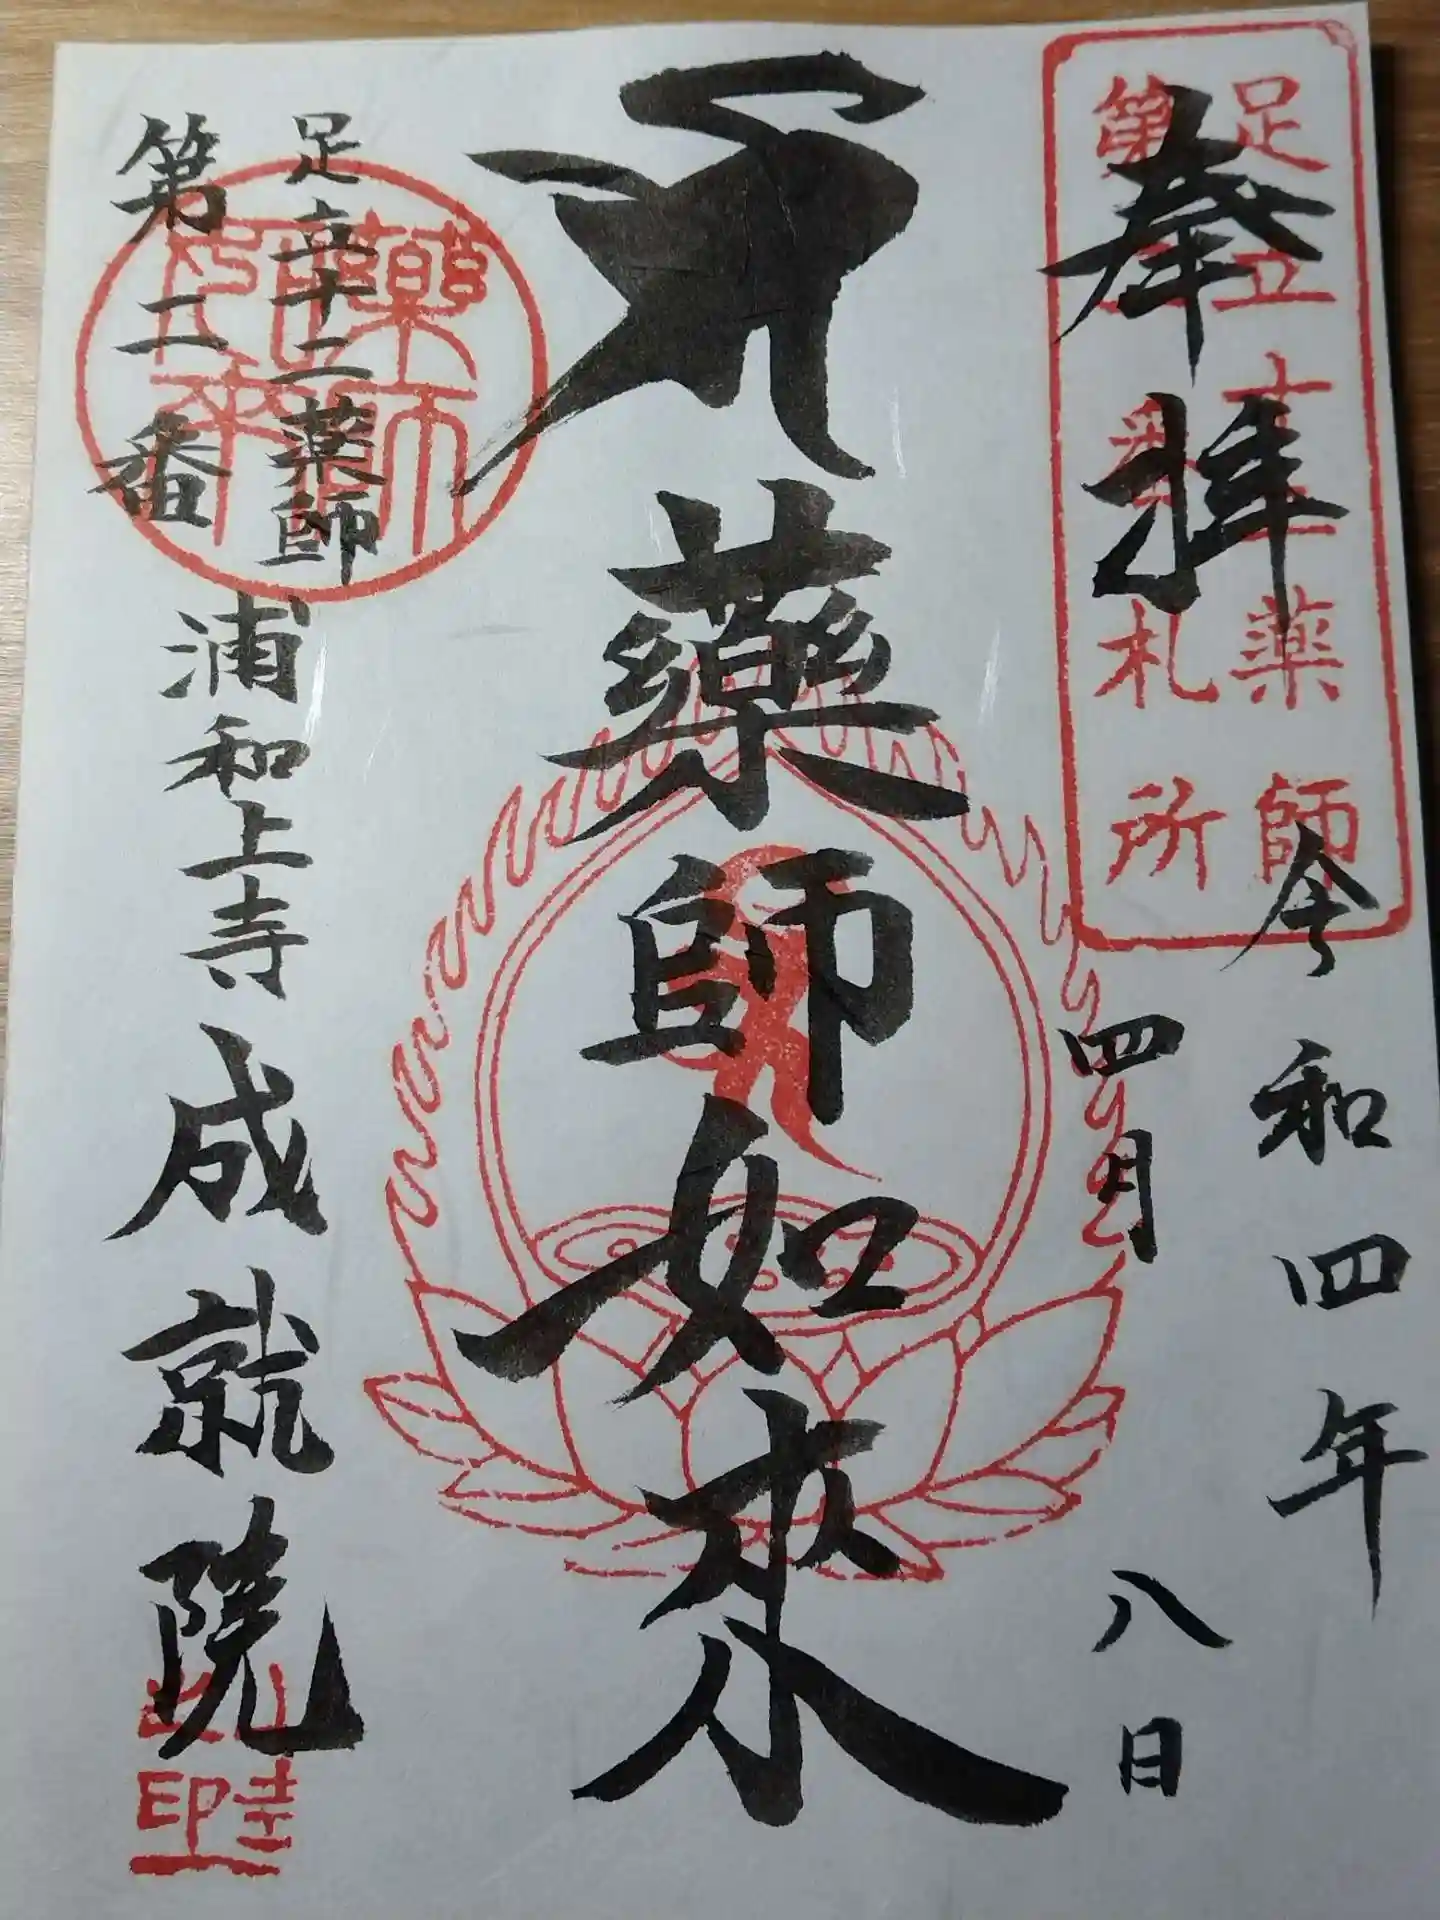 足立十二薬師
第二番札所
奉拝
令和四年
四月八日
藥師如来
足立十二薬師
第二番
浦和上寺
成就院